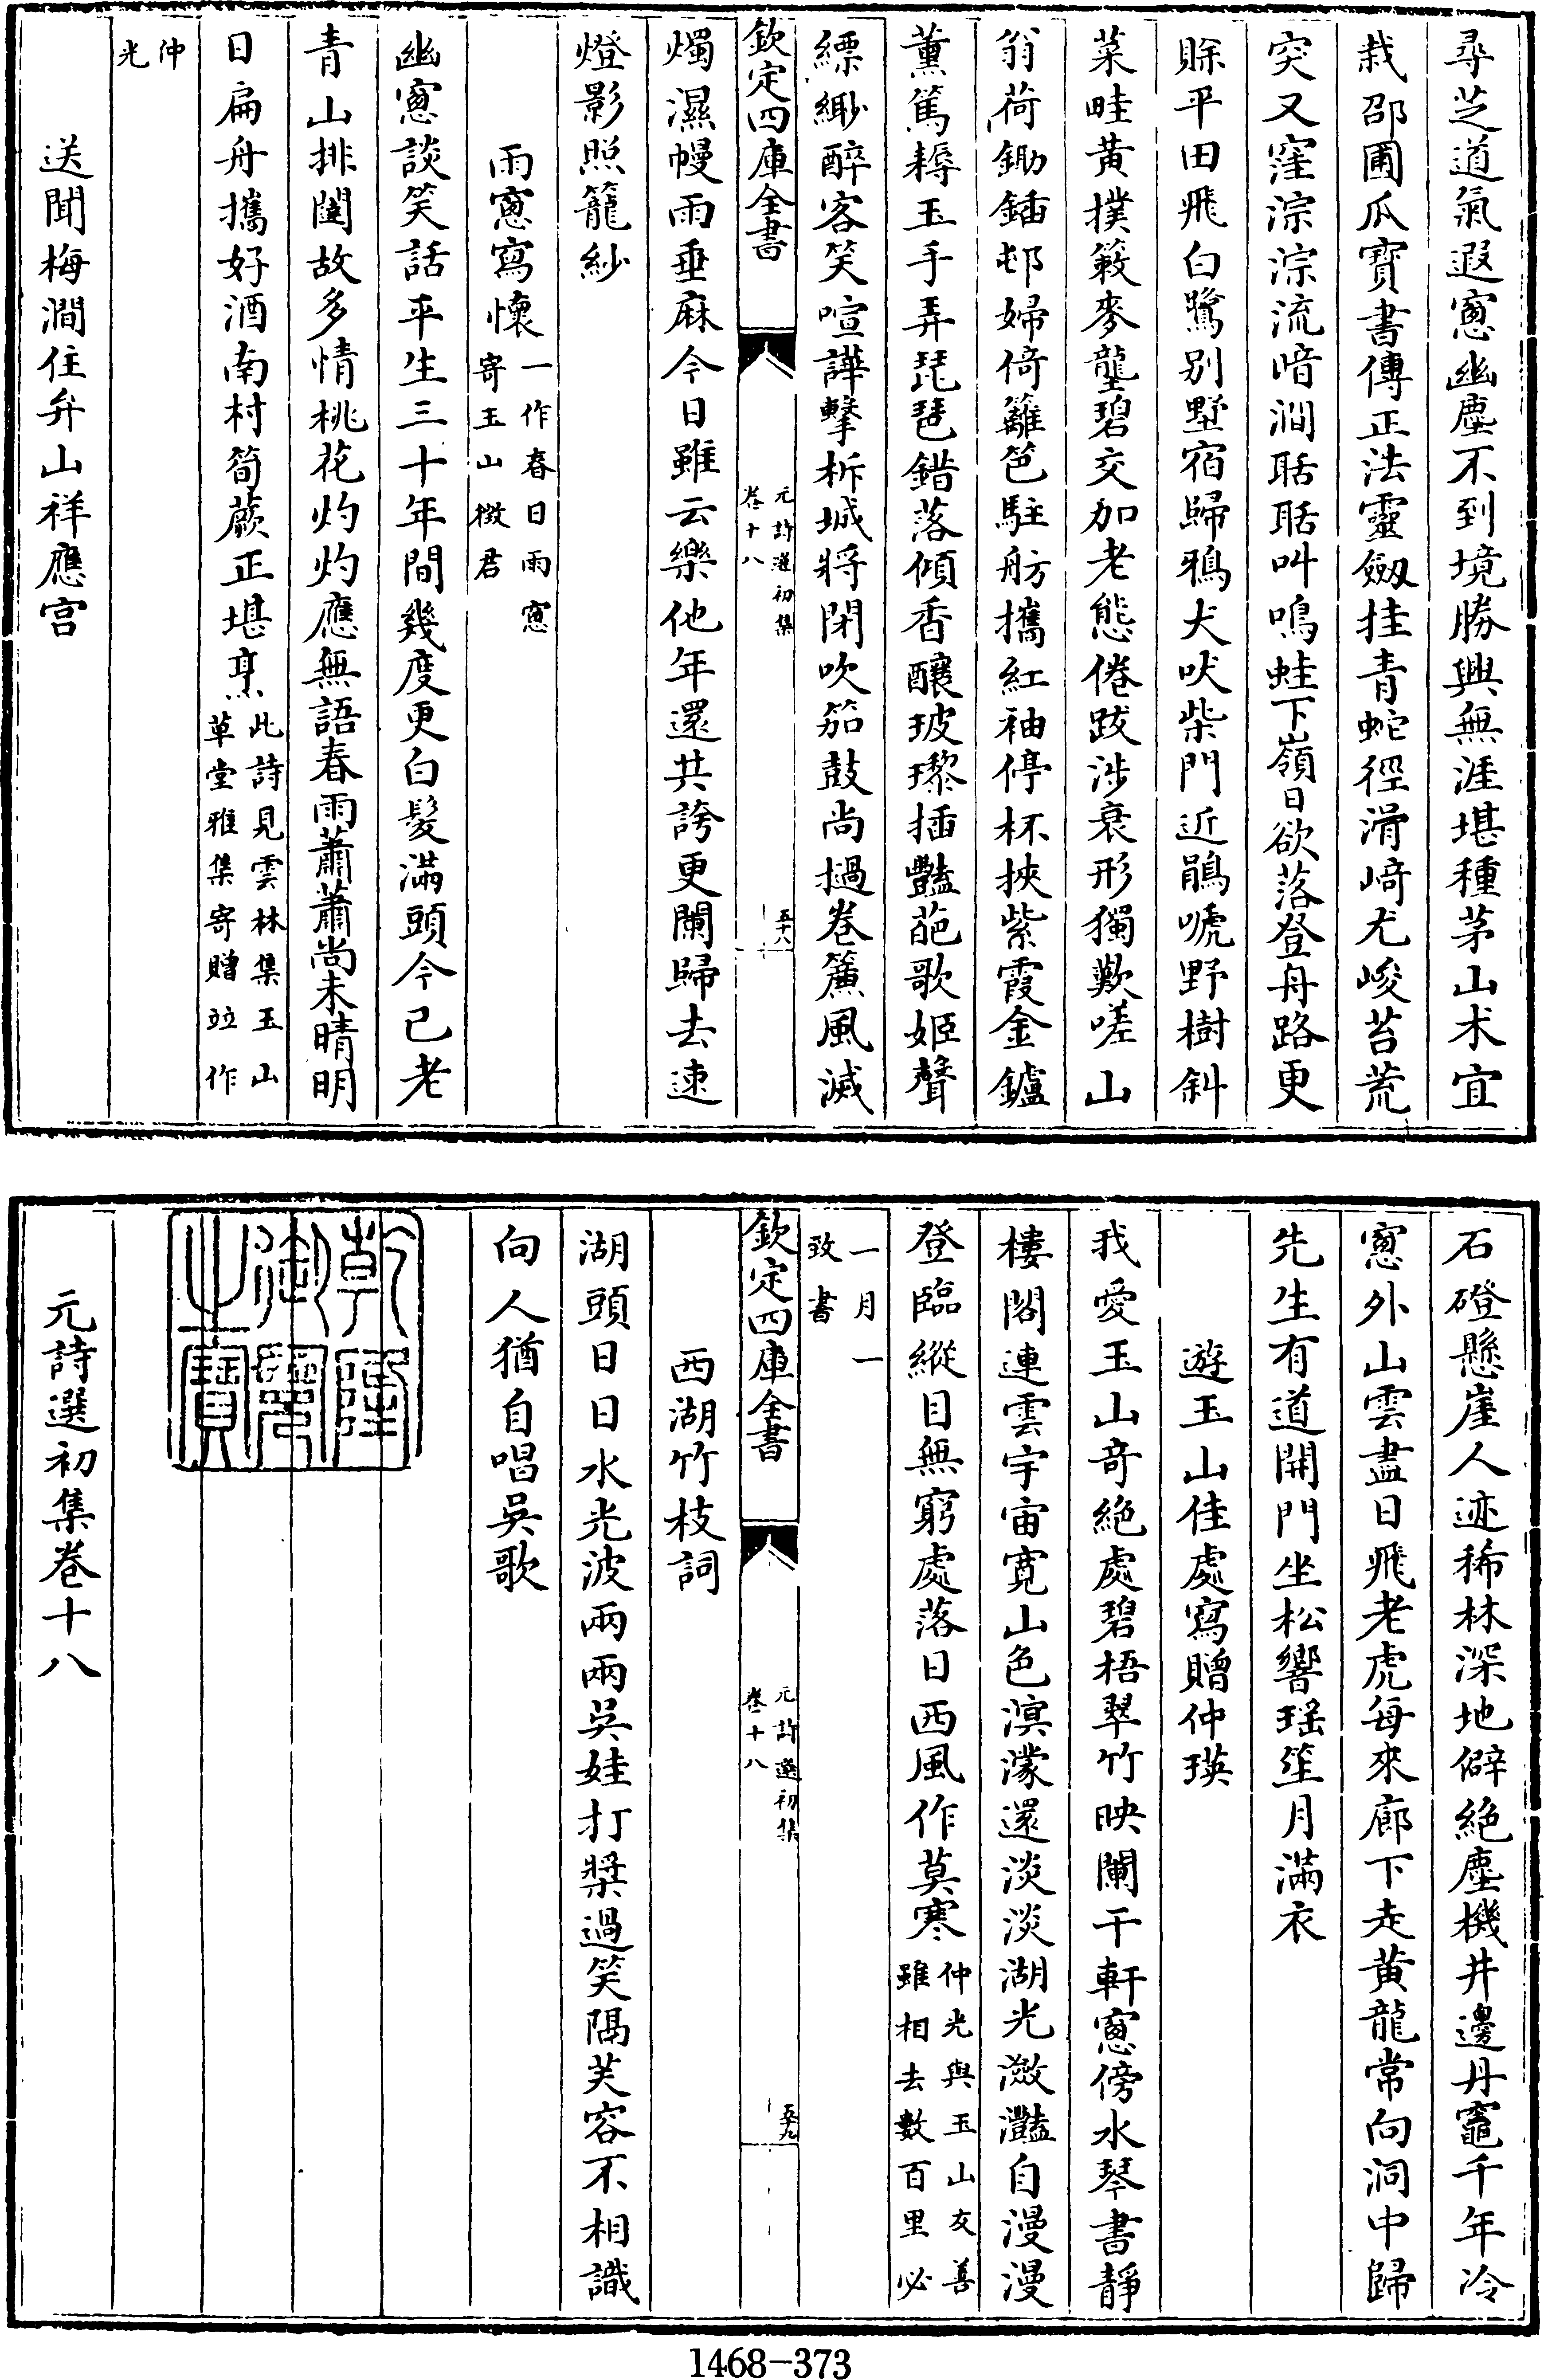 尋芝道氣遐窻幽塵不到境勝興無涯堪種茅山术宜
栽邵圃瓜寳書傳正法靈劔挂青蛇徑滑﨑尤峻苔荒
突又窪淙淙流暗澗聒聒叫鳴蛙下嶺日欲落登舟路更
賒平田飛白鷺别墅宿歸鴉犬吠柴門近鵑嗁野樹斜
菜畦黄撲簌麥壟碧交加老態倦跋涉衰形獨歎嗟山
翁荷鋤鍤邨婦倚籬笆駐舫攜紅袖停杯挾紫霞金鑪
薰篤耨玉手弄琵琶錯落傾香釀玻瓈插豔葩歌姬聲
縹緲醉客笑喧譁擊柝城將閉吹笳鼓尚撾卷簾風滅
欽定四庫全書
元詩選初集
卷十八
五十八
燭濕幔雨垂麻今日雖云樂他年還共誇更闌歸去速
燈影照籠紗
雨窻寫懷一作春日雨窻
寄玉山徴君
幽窻談笑話平生三十年間幾度更白髪滿頭今已老
青山排闥故多情桃花灼灼應無語春雨蕭蕭尚未晴明
日扁舟攜好酒南村筍蕨正堪烹此詩見雲林集玉山
草堂雅集寄贈竝作
仲
光
送聞梅澗住弁山祥應宫
石磴懸崖人迹稀林深地僻絶塵機井邊丹竈千年冷
窻外山雲盡日飛老虎每來廊下走黄龍常向洞中歸
先生有道開門坐松響瑶笙月滿衣
遊玉山佳處寫贈仲瑛
我愛玉山奇絶處碧梧翠竹映闌干軒窻傍水琴書静
樓閣連雲宇宙寛山色溟濛還淡淡湖光瀲灩自漫漫
登臨縱目無窮處落日西風作莫寒仲光與玉山友善
雖相去數百里必
一月一
致書
欽定四庫全書
元詩選初集
卷十八
五十九
西湖竹枝詞
湖頭日日水光波兩兩吳娃打槳過笑隔芙容不相識
向人猶自唱吳歌
乾隆
御覽
之寶
元詩選初集卷十八
1468-373